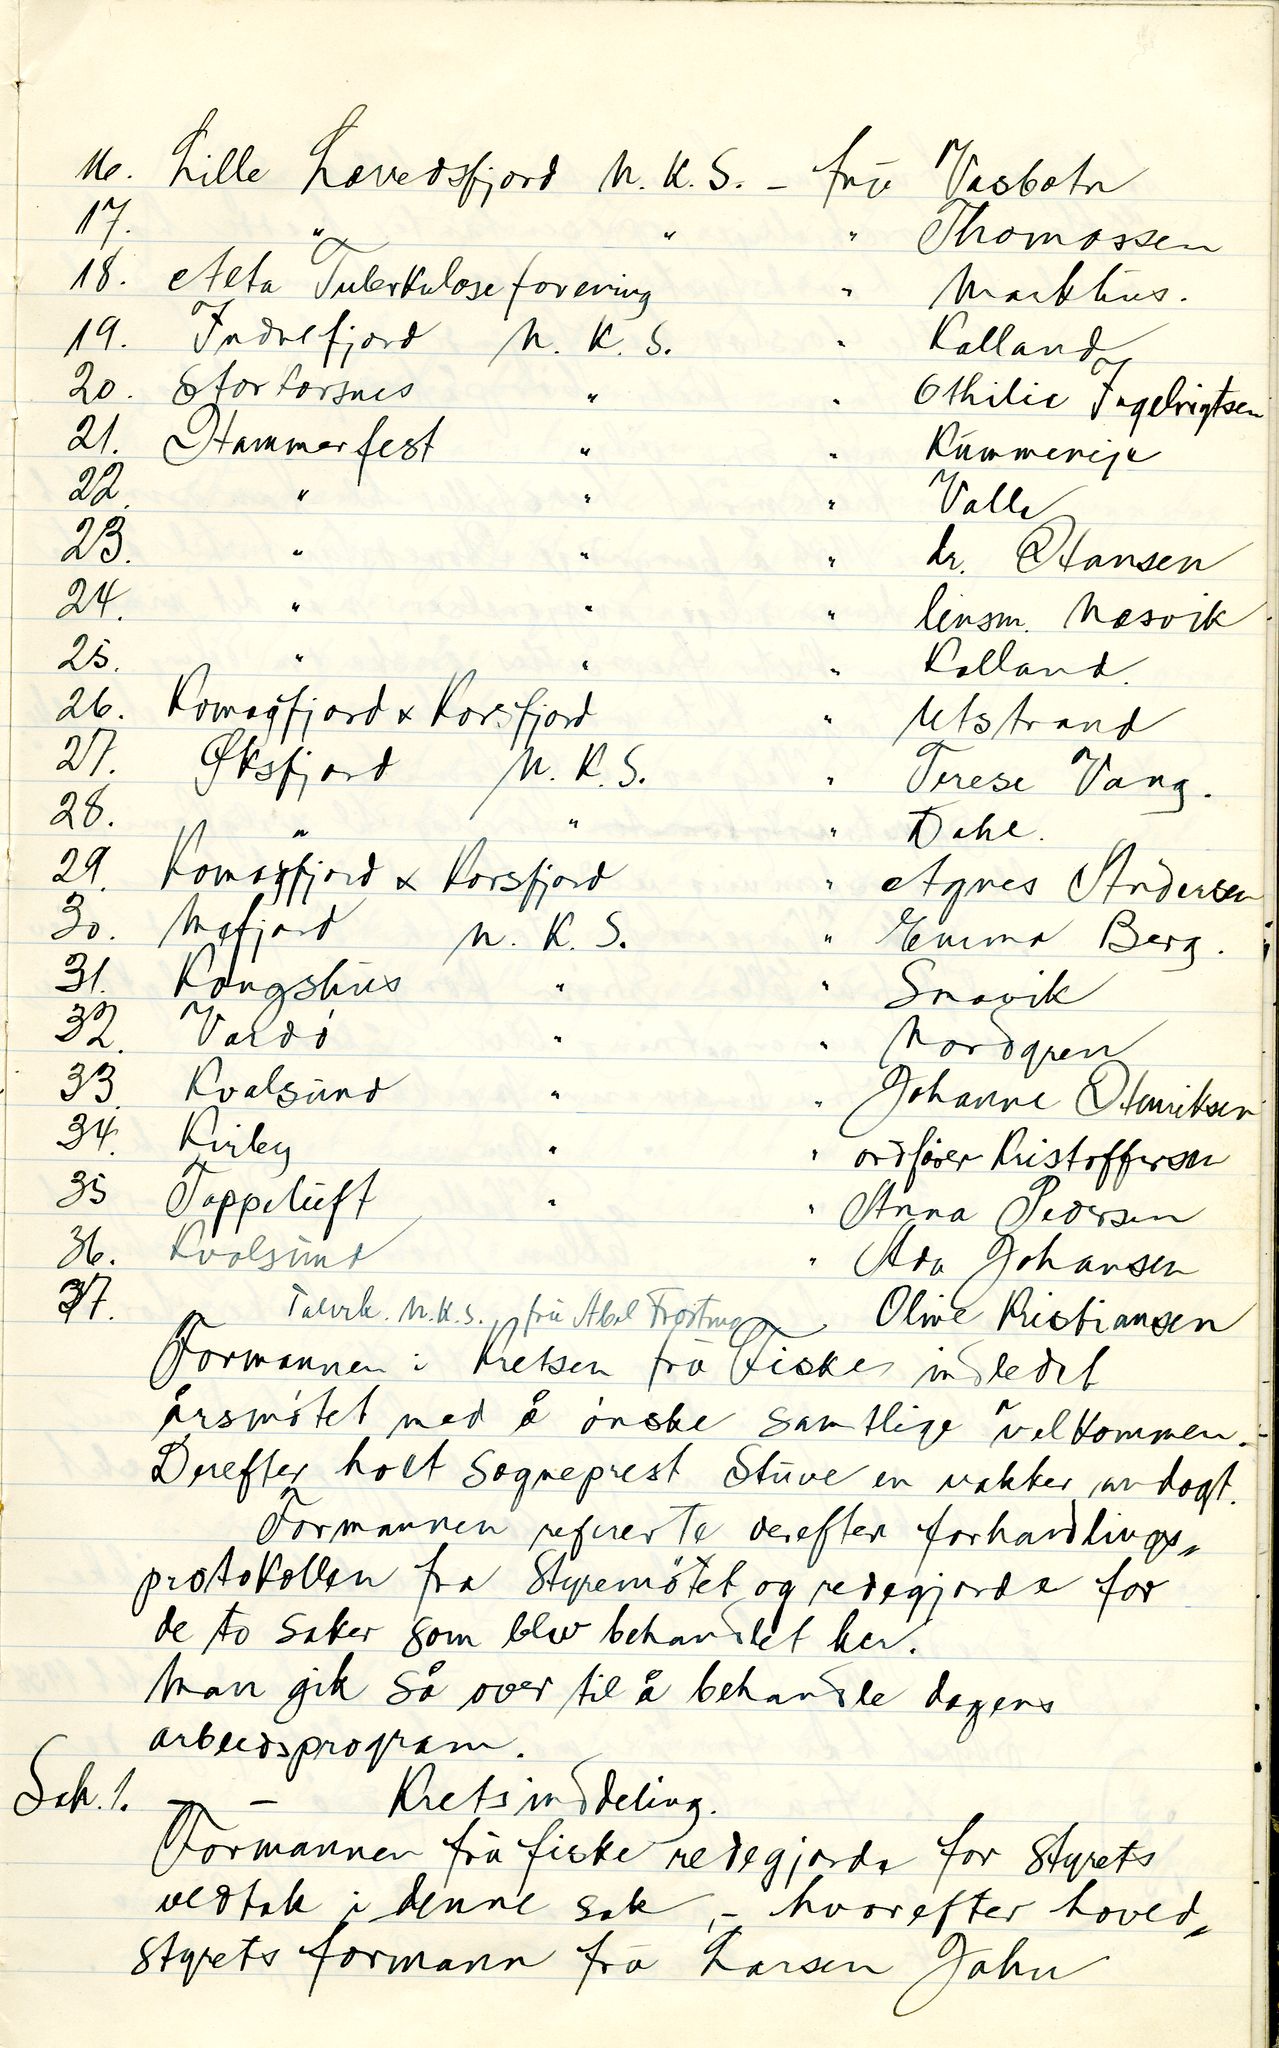 16. Lille Lerredsfjord N.K.S. - frú Vasbotn
17. " " " Thomassen
18. Alta Tuberkuloseforening " Markhus.
19. Indrefjord N.K.S. " Kolland
20. Storkorsnes " " Othilie Ingebrigtsen
21. Hammerfest " " Kummeneje
22. " " " Valle
23. " " " dr. Hansen
24. " " " lensm. Næsvik
25. " " " Kolland.
26. Komagfjord & Korsfjord " Utstrand
27. Øksfjord N.K.S. " Terese Vang.
28. " " " Dahl.
29. Komagfjord & Korsfjord " Agnes Andersen
30. Mafjord N.K.S. " Emma Berg.
31. Kongshus " " Smavik
32. Vardö " " Nordgren
33. Kvalsund " " Johanne Henriksen
34. Kviby " " ordfører Kristoffersen
35 Toppeluft " " Anna Pedersen
36. Kvalsund " Ada Johansen
37. Talvik. N.K.S. frú Abel Olive Kristiansen
Formannen i Kretsen frú Fiske indledet
årsmötet med å önske samtlige velkommen.
Derefter holt Sogneprest Stuve en vakker andagt.
Formannen refererte derefter forhandlings„
protokollen fra Styremötet og redegjorde for
de to saker som blev behandlet her.
Man gik så over til å behandle dagens
arbeidsprogram.
Sak. 1. — — Kretsinddeling.
Formannen frú fiske redegjorde for Styrets
vedtak i denne sak, - hvorefter hoved„
styrets formann frú Larsen Jahn